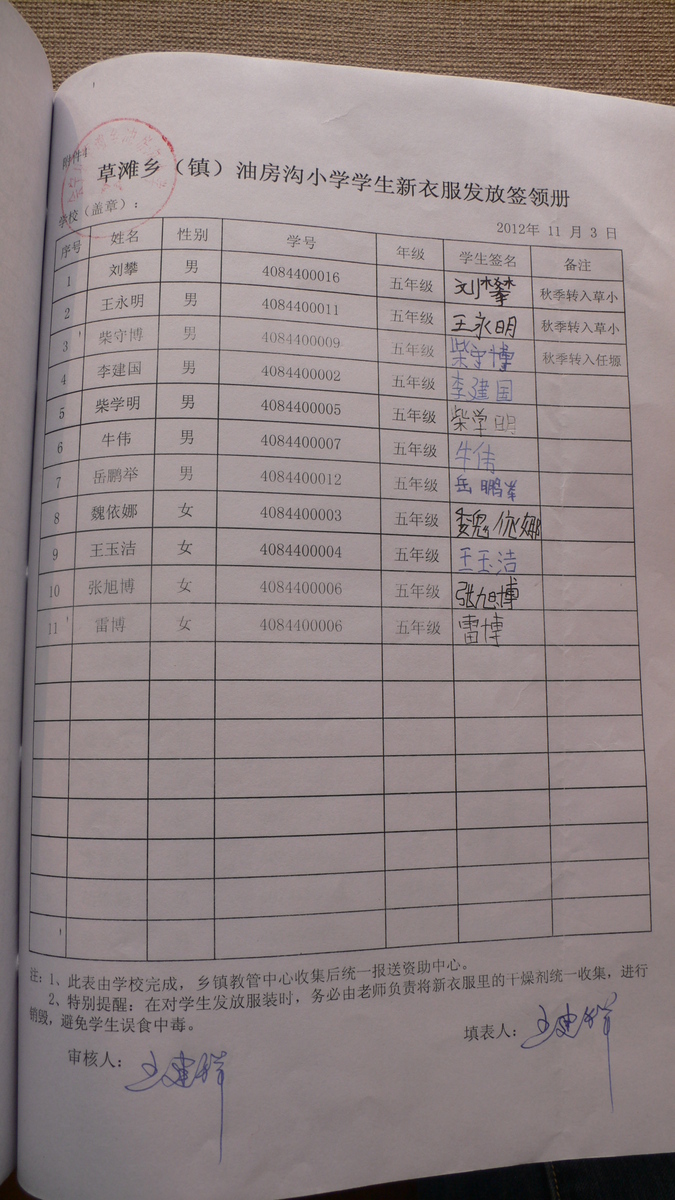 附件4
草滩乡（镇）油房沟小学学生新衣服发放签领册
学校（盖章）：
2012年 11 月 3 日
序号 姓名 性别 学号 年级 学生签名 备注
1 刘攀 男 4084400016 五年级 刘攀 秋季转入草小
2 王永明 男 4084400011 五年级 王永明 秋季转入草小
3 柴守博 男 4084400009 五年级 柴守博 秋季转入任塬
4 李建国 男 4084400002 五年级 李建国
5 柴学明 男 4084400005 五年级 柴学明
6 牛伟 男 4084400007 五年级 牛伟
7 岳鹏举 男 4084400012 五年级 岳鹏举
8 魏依娜 女 4084400003 五年级 魏依娜
9 王玉洁 女 4084400004 五年级 王玉洁
10 张旭博 女 4084400006 五年级 张旭博
11 雷博 女 4084400006 五年级 雷博
注：1、此表由学校完成，乡镇教管中心收集后统一报送资助中心。
2、特别提醒：在对学生发放服装时，务必由老师负责将新衣服里的干燥剂统一收集，进行
销毁，避免学生误食中毒。
填表人：
审核人：